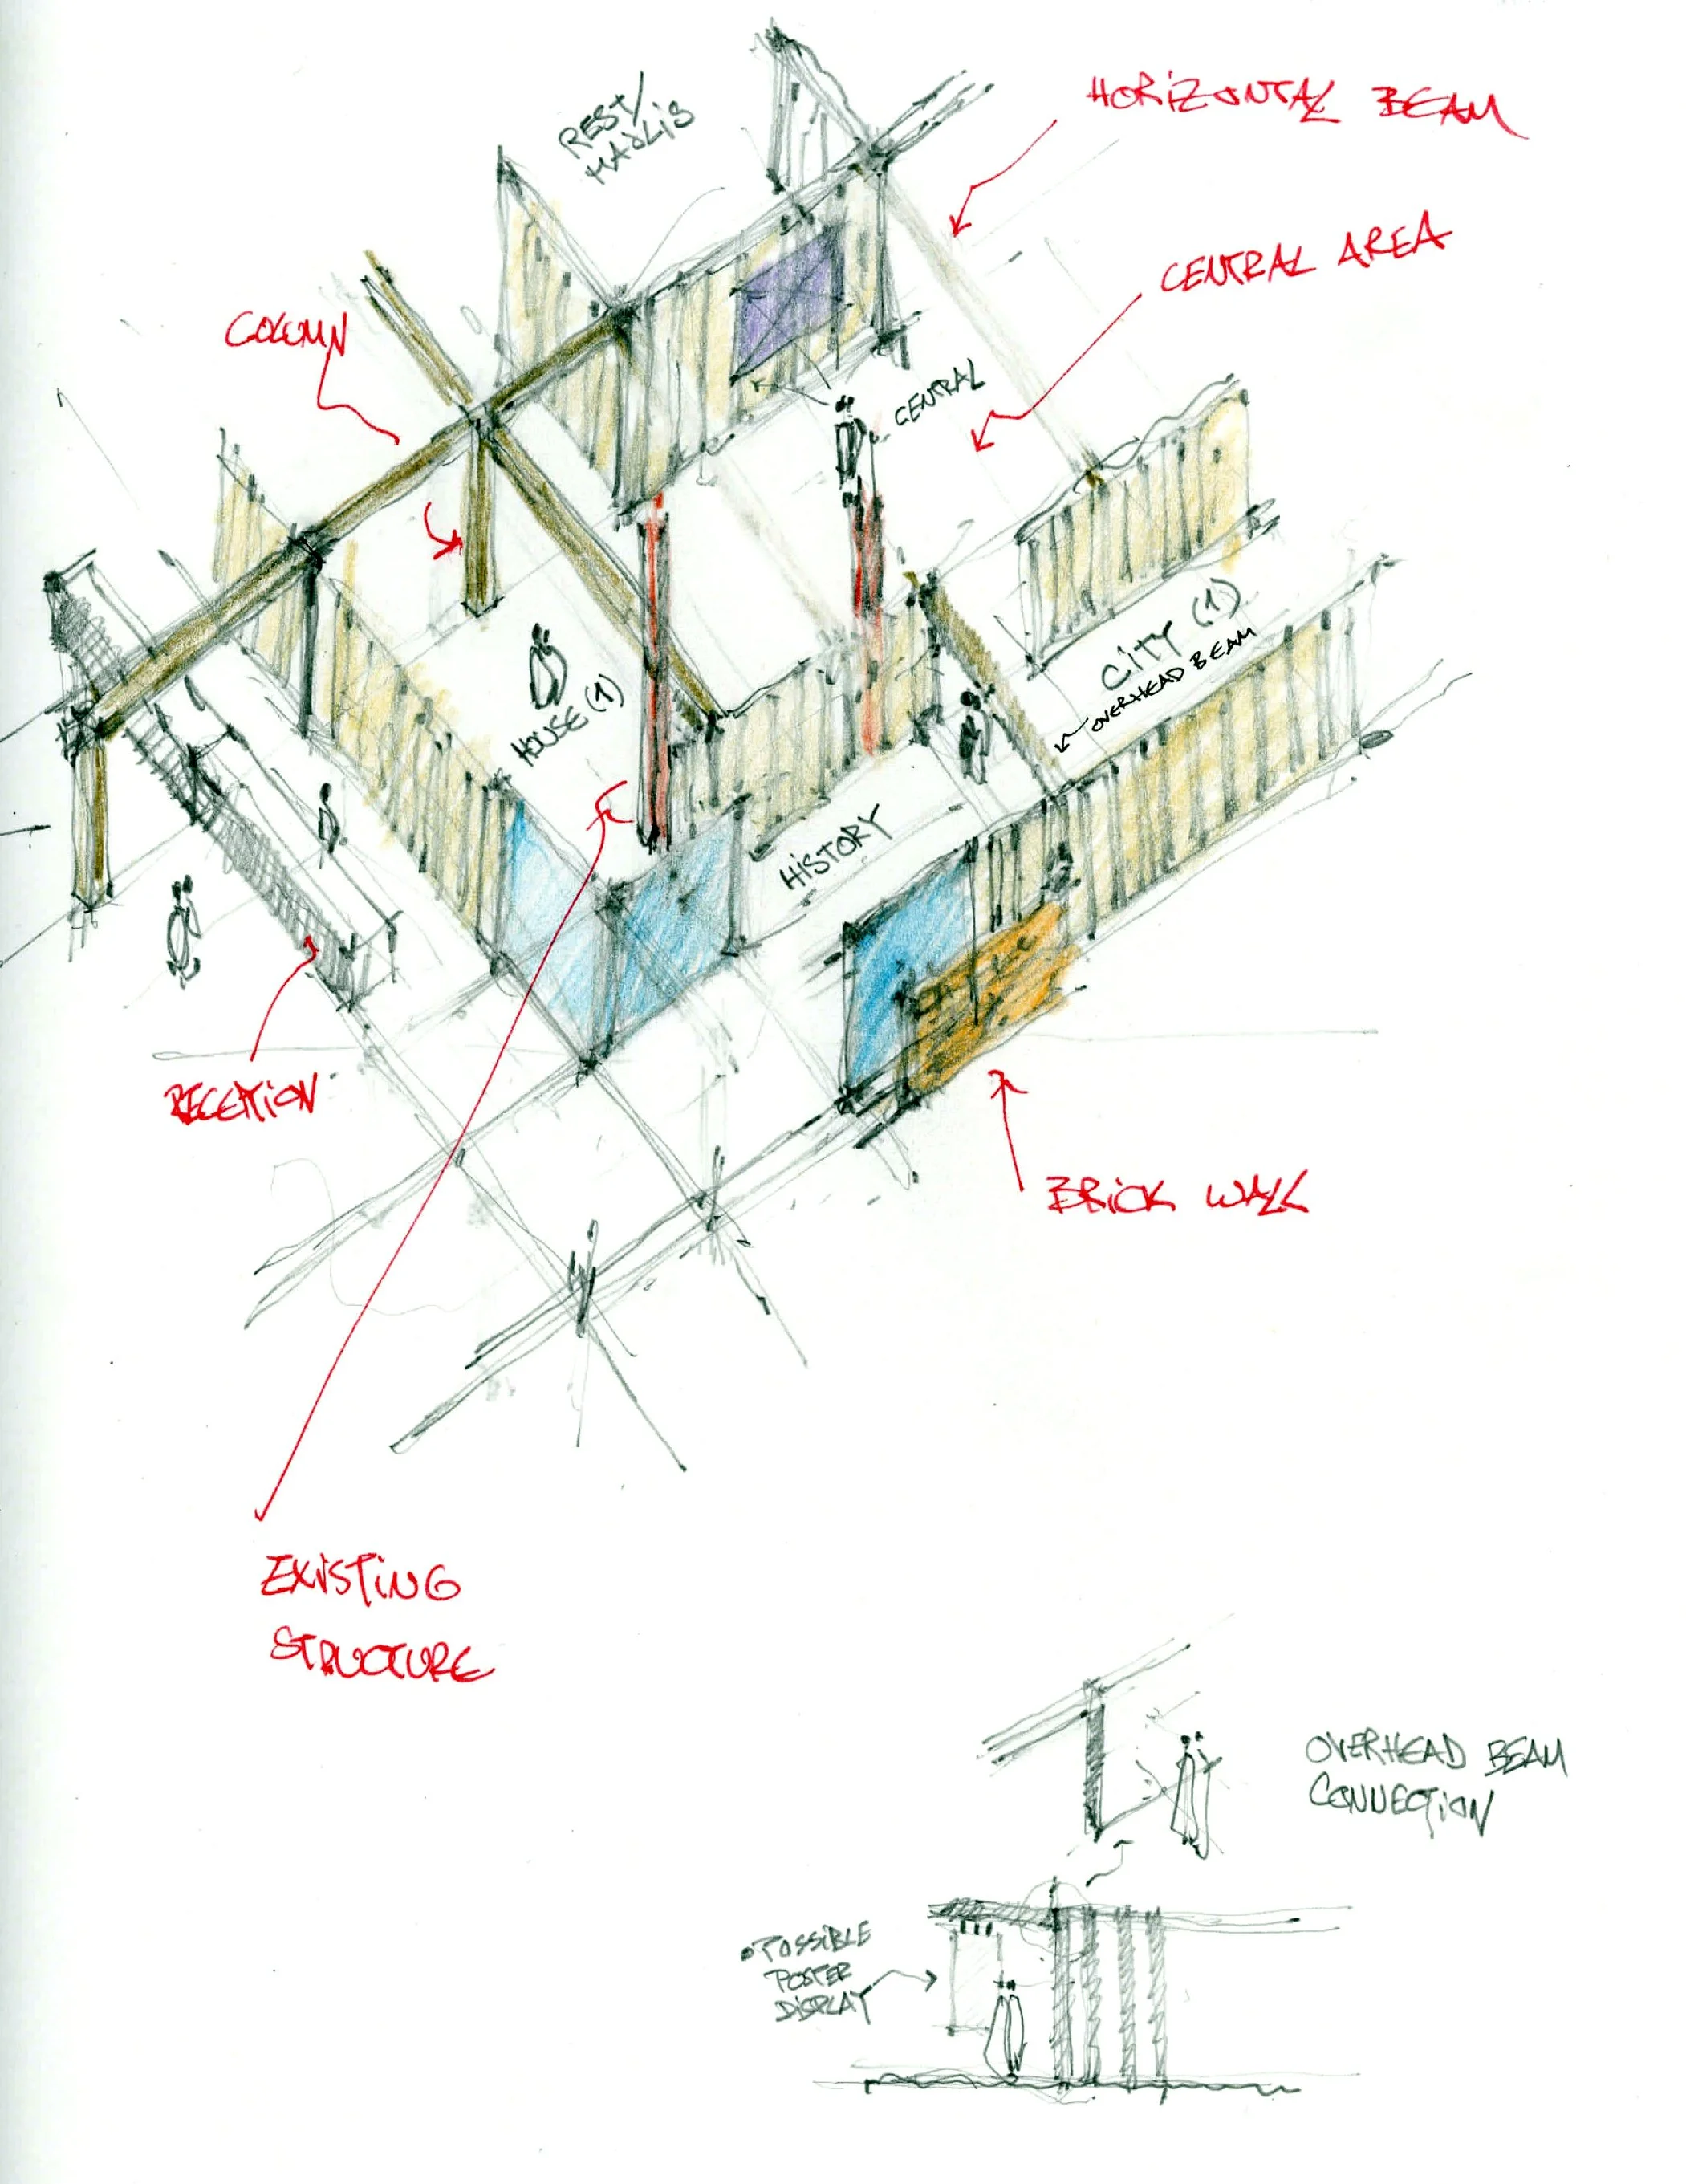 HORIZONTAL BEAM
REST/
MAJLIS
CENTRAL AREA
COLUMN
CENTRAL
CITY (1)
OVERHEAD BEAM
HOUSE (1)
HISTORY
RECEPTION
BRICK WALL
EXISTING
STRUCTURE
OVERHEAD BEAM
CONNECTION
• POSSIBLE
POSTER
DISPLAY